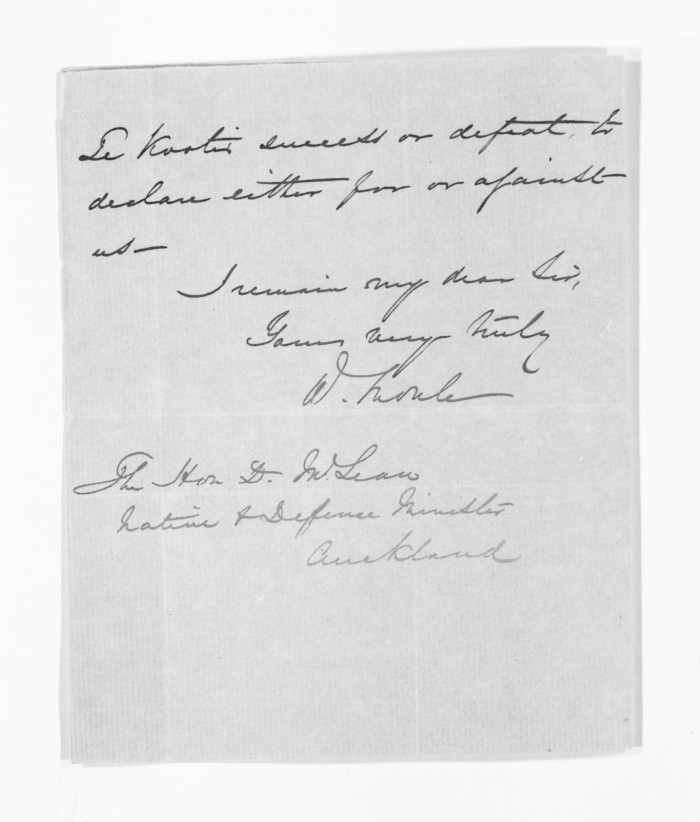 Te Kootis success or defeat, to
declare either for or against
us—
I remain my dear Sir,
Yours very truly
W.
The Hon D. McLean
Native & Defence Minister
Auckland